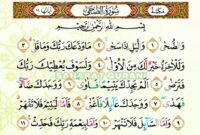 سُورَةُ الضُّحَى
بِسْمِ اللَّهِ الرَّحْمَٰنِ الرَّحِيمِ
وَالضُّحَى ١ وَاللَّيْلِ إِذَا سَجَى ٢ مَا وَدَّعَكَ رَبُّكَ وَمَا قَلَى ٣
وَلَلْآخِرَةُ خَيْرٌ لَكَ مِنَ الْأُولَى ٤ وَلَسَوْفَ يُعْطِيكَ رَبُّكَ
فَتَرْضَى ٥ أَلَمْ يَجِدْكَ يَتِيمًا فَآوَى ٦ وَوَجَدَكَ ضَالًّا
فَهَدَى ٧ وَوَجَدَكَ عَائِلًا فَأَغْنَى ٨ فَأَمَّا الْيَتِيمَ فَلَا تَقْهَرْ
٩ وَأَمَّا السَّائِلَ فَلَا تَنْهَرْ ١٠ وَأَمَّا بِنِعْمَةِ رَبِّكَ فَحَدِّثْ ١١